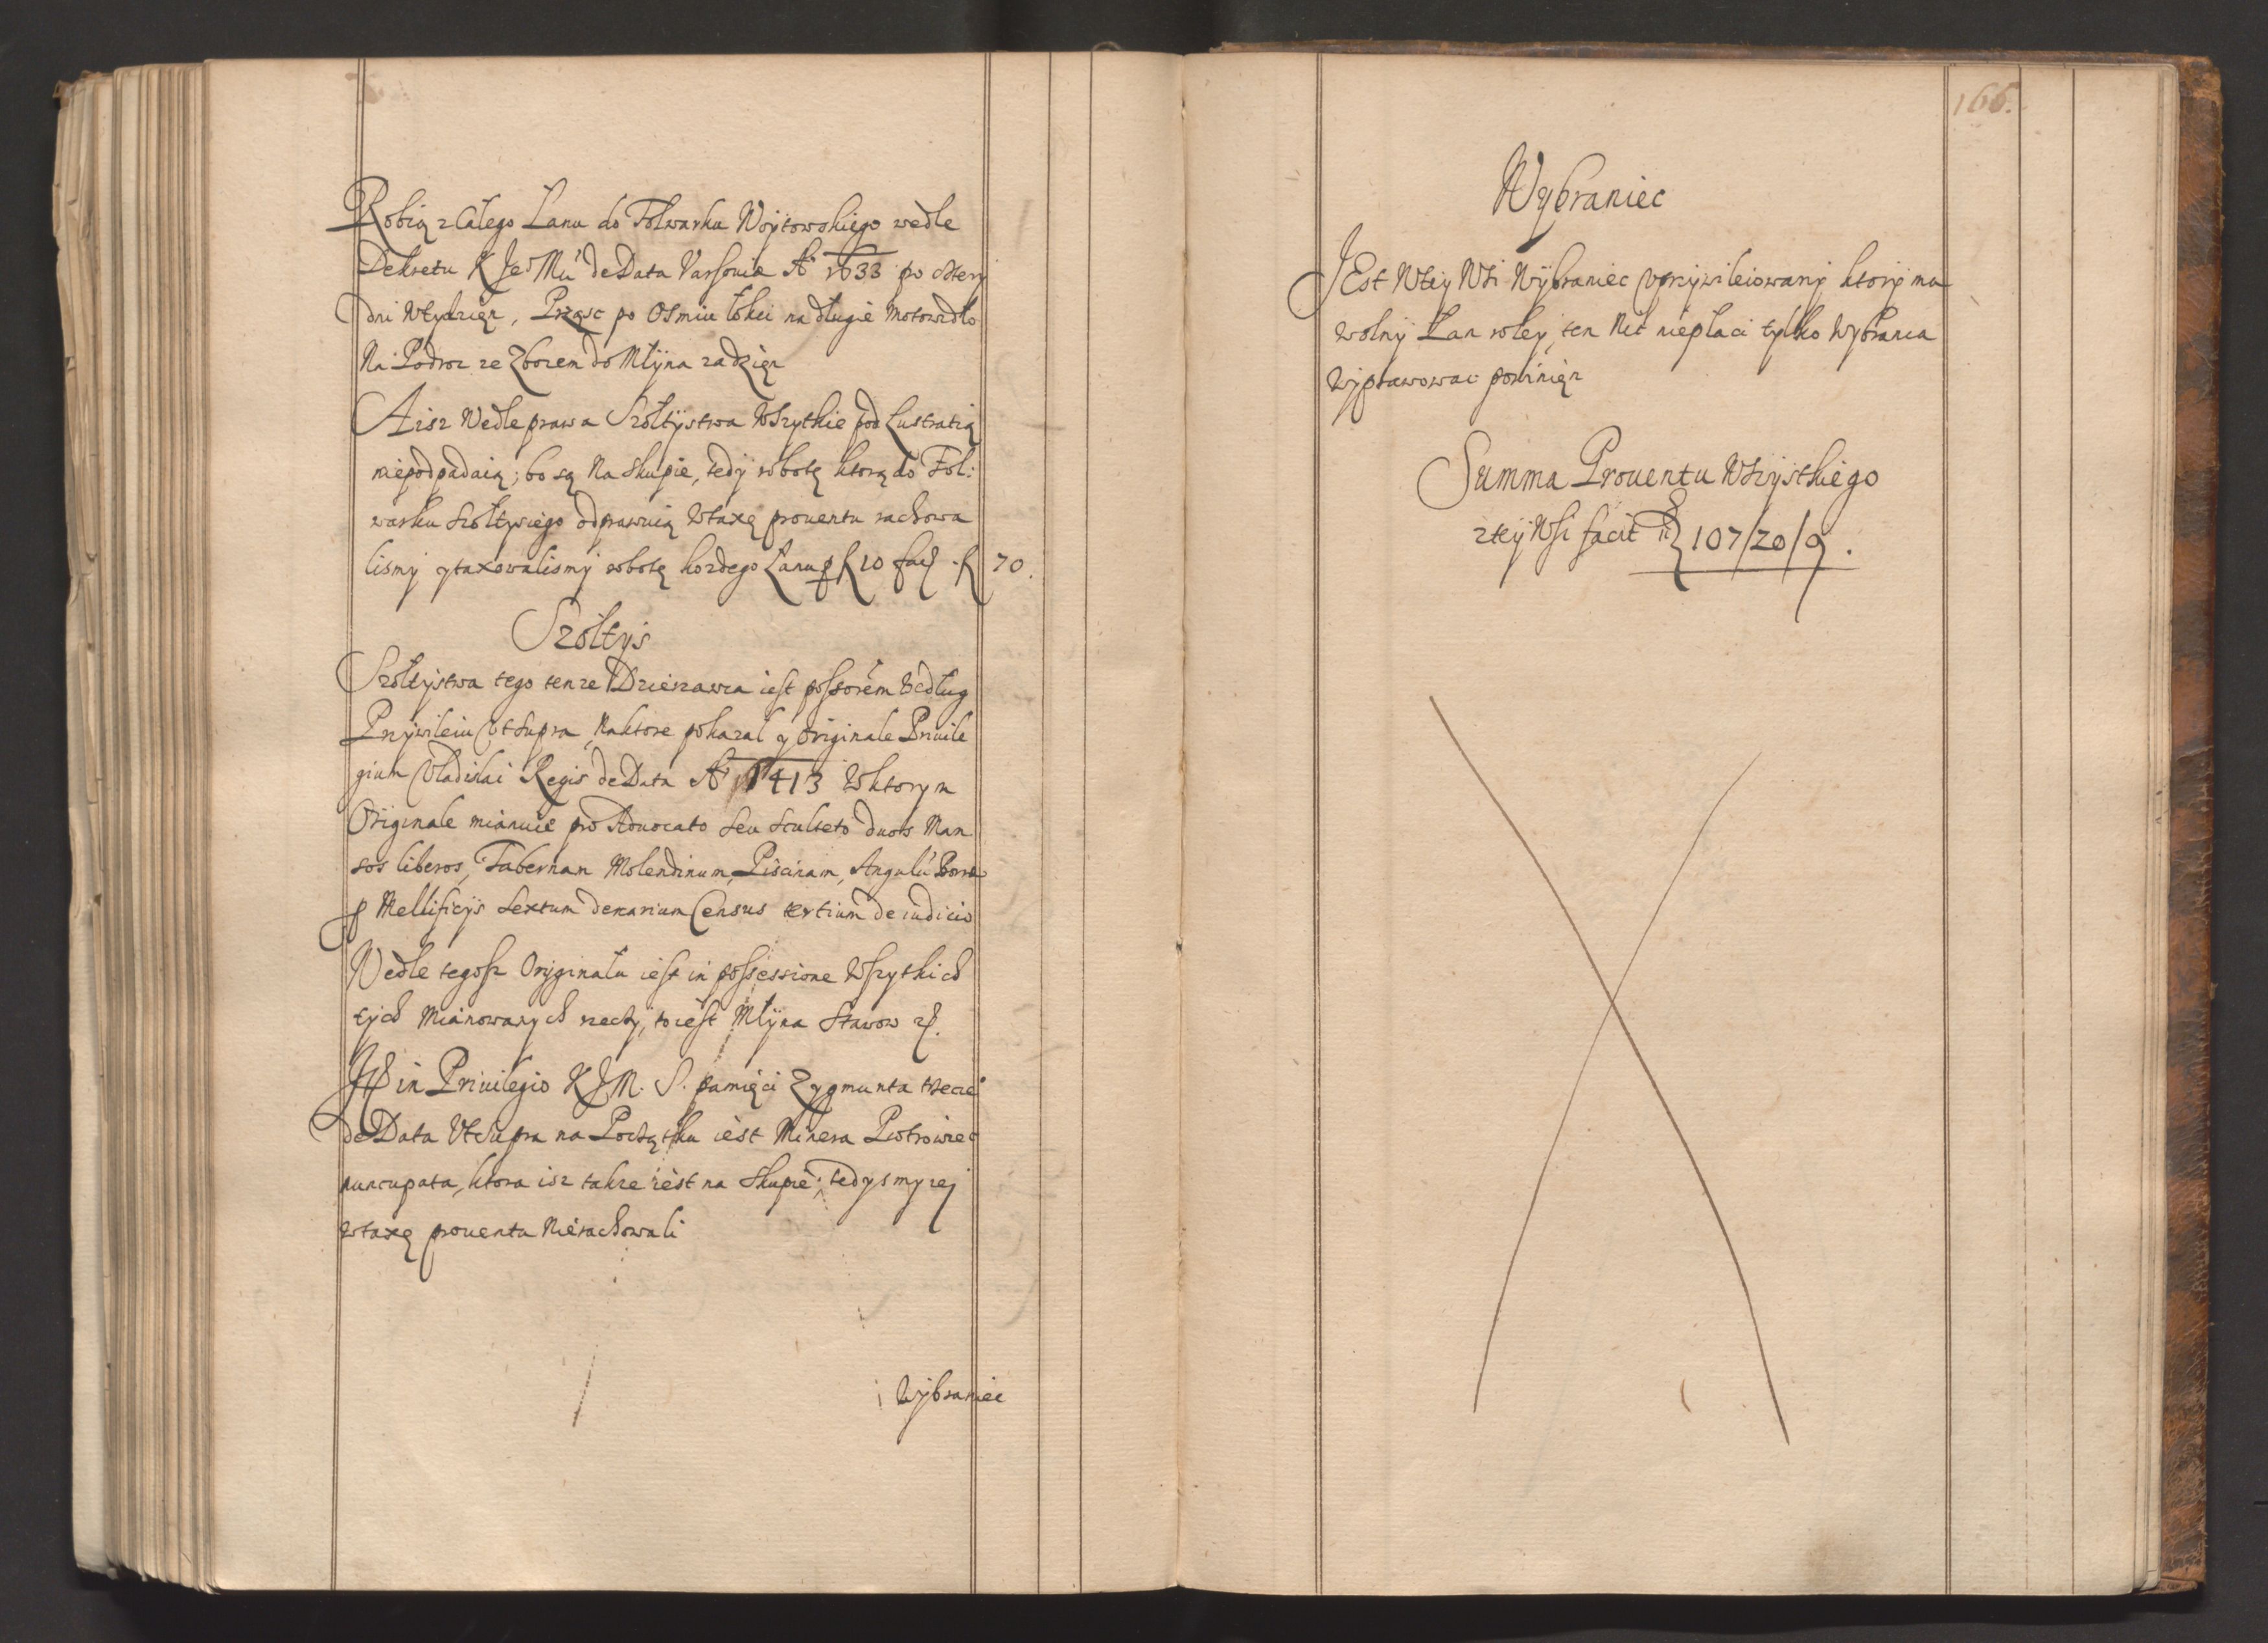 Robią z Całego Łanu do Folwarku Woytowskiego wedle
Dekretu K Je° Mći de Data Varsoviæ A° 1633 po cztery
dni Wtydzięn, Prząsc po Osmiu łokci na długie Motowidło
Na Podroz ze Zbozem do Młÿna zadzięn
A isz Wedle prawa Szołtÿstwa Wszytkie pod Lustratią
niepodpadaią; bo są Na Skupie, tedÿ robotę ktorą do Fol:
warku Szołtÿsiego odprawuią Wtaxę prouentu rachowa
lismÿ ytaxowalismÿ robotę kozdego Łanu p f 10 facit f 70.
Szołtÿs
Szołtÿstwa tego tenze Dzierzawca iest possorem Według
Przÿwileiu Vt Supra, Naktore pokazał y originale Priuile
gium Vladislai Regis de Data A° 1413 Wktorym
Originale mianuie pro Aduocato Seu Sculteto duos Man
sos liberos, Tabernam Molendinum, Piscinam, Angulũ Borræ
p Mellificÿs Sextum denarium Census tertium de iudicio
Wedle tegosz Orÿginału iest in possessione Wszytkich
tÿch Mianowanych rzeczÿ, to iest Młÿna Stawow etc.
Itẽ in Priuilegio K J M. S. pamięci Zygmunta trzecie°
de Data Vt Supra na Początku iest Minera Piotrowiec
nuncupata, ktora isz takze iest na Skupie; tedysmy iej
Wtaxę prouentu Nierachowali
Wÿbraniec
166.
Wybraniec
JEst Wteÿ Wsi Wÿbraniec Vprzÿwileiowanÿ ktorÿ ma
wolnÿ Łan roleÿ, ten Nic niepłaci tylko Wybranca
Wÿprawowac powinięn
Summa Prouentu Wszÿstkiego
zteÿ Wsi facit f 107/20/9.